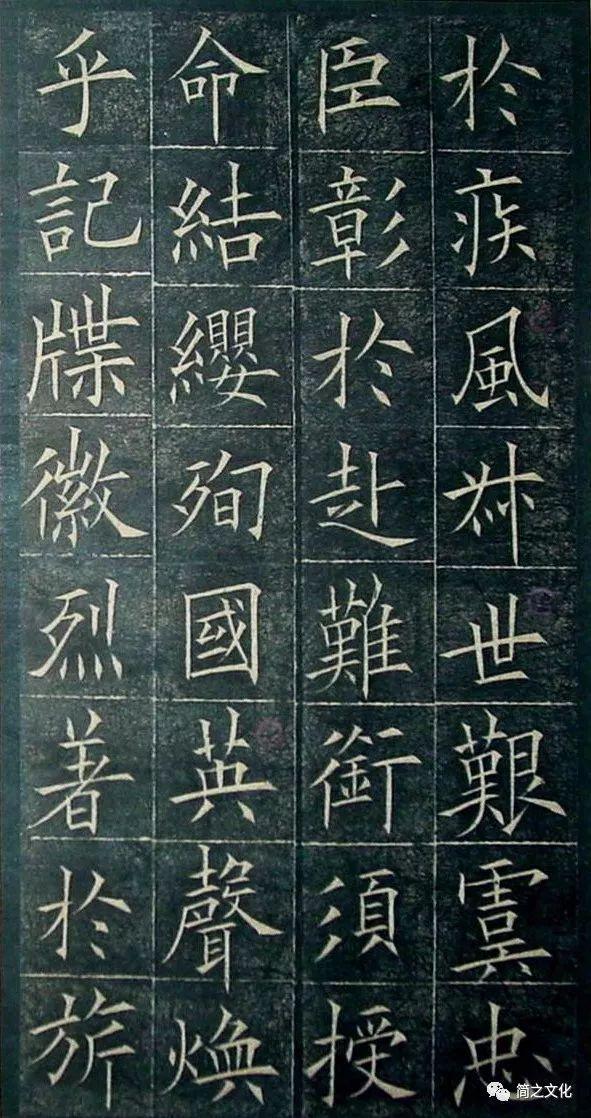 於疾風叔世艱虞忠
臣彰於赴難銜須授
命結纓殉國英聲煥
乎記牒徽烈著於旂
简之文化